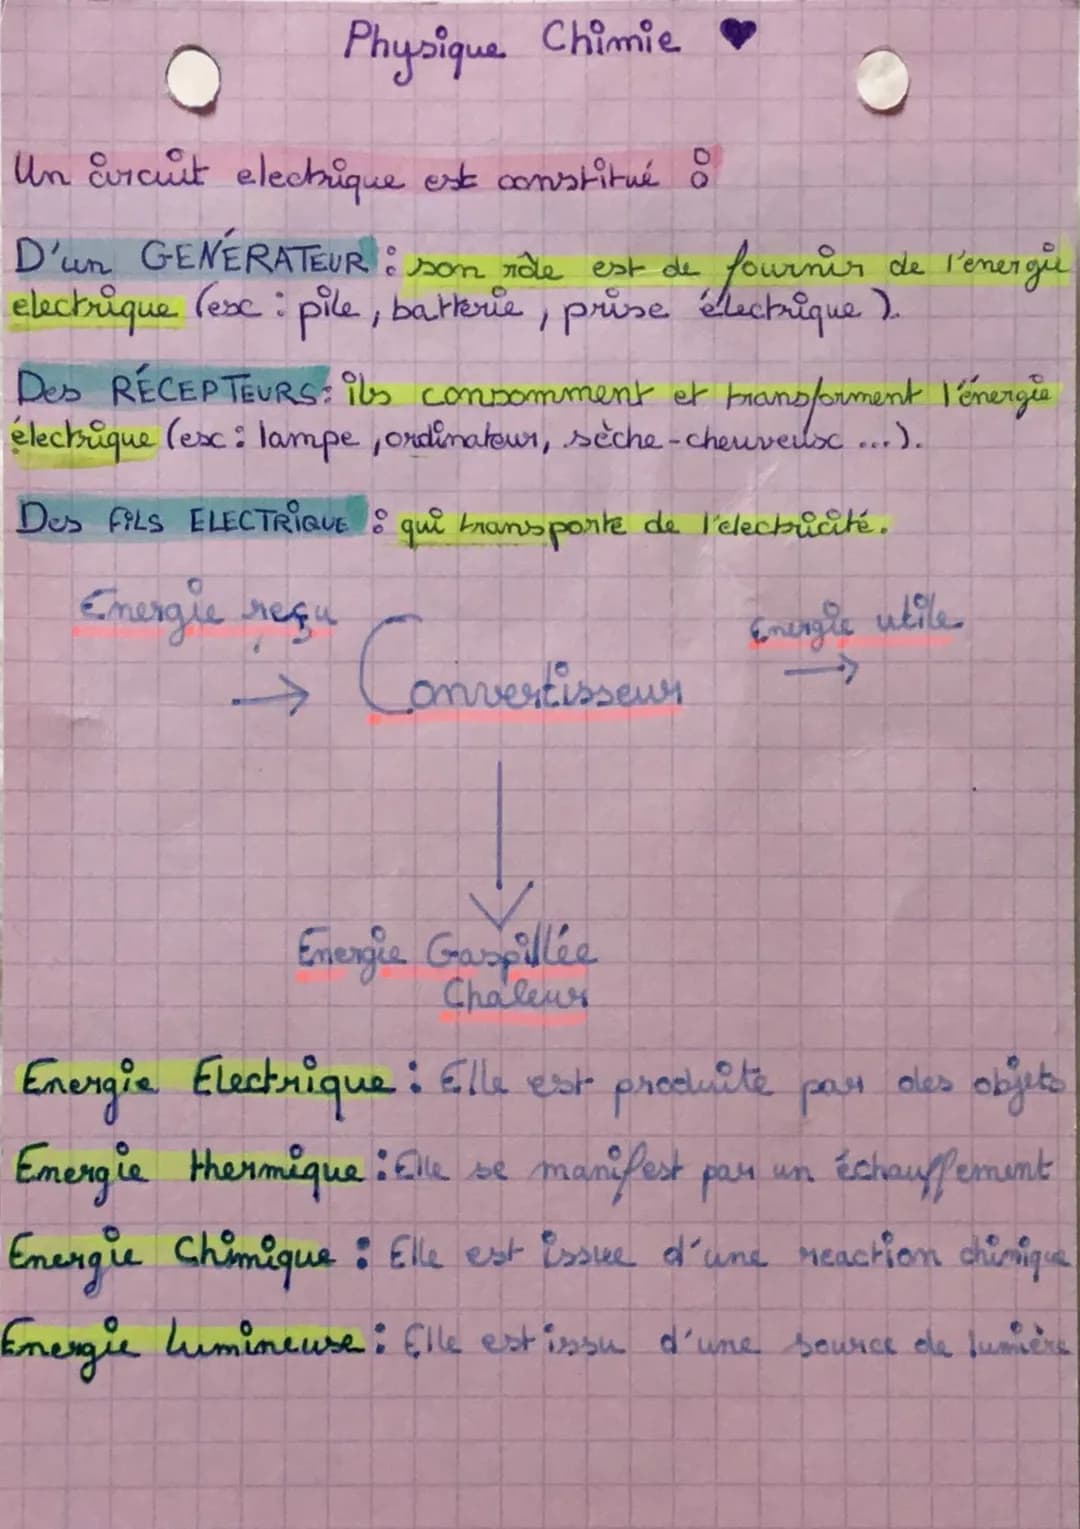 Physique Chimie ♥
Un circuit electrique est constitué :
D'un GENÉRATEUR : son rôle est de fournir de l'energie
electrique (ex : pile, batterie, prise électrique).
Des RÉCEPTEURS : ils consomment et transforment l'énergie
électrique (ex : lampe, ordinateur, sèche-cheuveux ...).
Des FILS ELECTRIQUE : qui transporte de l'electricité.
Energie reçu
Energie utile
Convertisseur
Energie Gaspillée
Chaleur
Energie Electrique : Elle est produite par des objets
Energie thermique : Elle se manifest par un échauffement
Energie Chimique : Elle est issue d'une reaction chimique
Energie lumineuse : Elle est issu d'une source de lumière